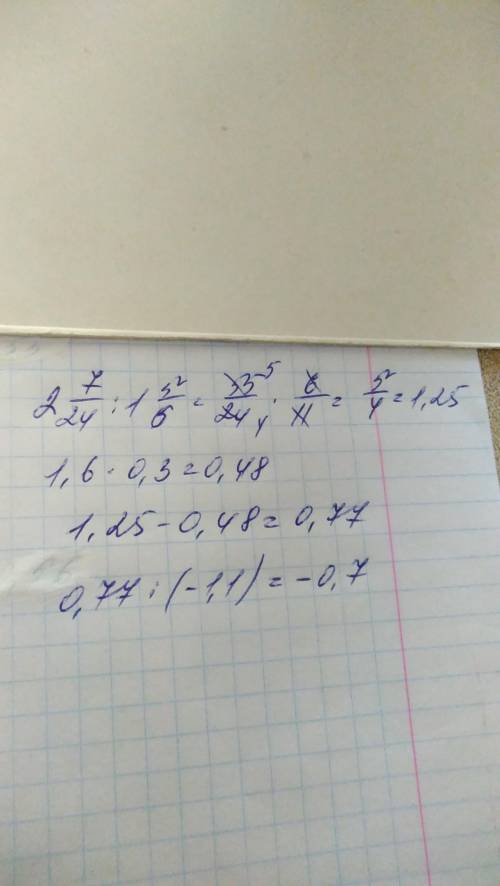 2 7/24 : 1 5/6 = 55/24 · 6/11 = 5/4 = 1,25
1,6 · 0,3 = 0,48
1,25 - 0,48 = 0,77
0,77 : (-1,1) = -0,7